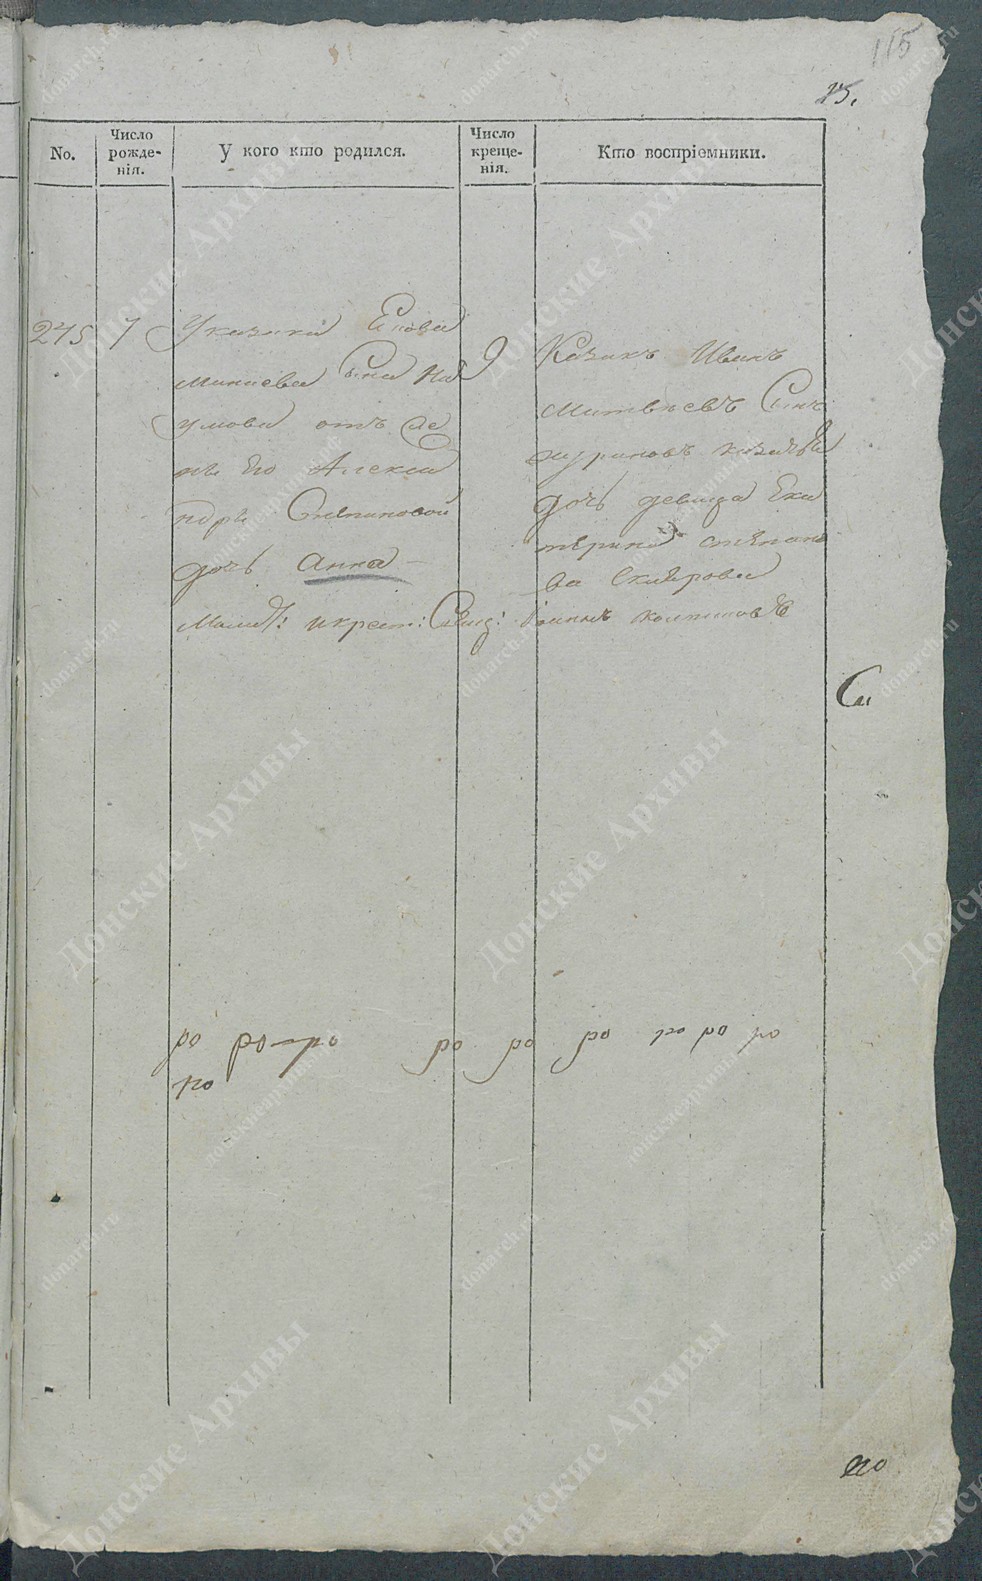 115
15.
No.
Число рожде-нія.
У кого кто родился.
Число креще-нія.
Кто воспріемники.
275 7
Указака Емова
Минаева Сына На
умова отъ же
ны Его Алекса
ндры
дочь Анна
9
Казакъ Иванъ
Матвѣевъ Сынъ
казачья
дочь девица Ека
терина степано
ва
Молит: и крест: Свящ:
Си
ро ро-ро ро ро ро ро ро ро
ро
по
Донские Архивы
donarch.ru
донскиеархивы.рф